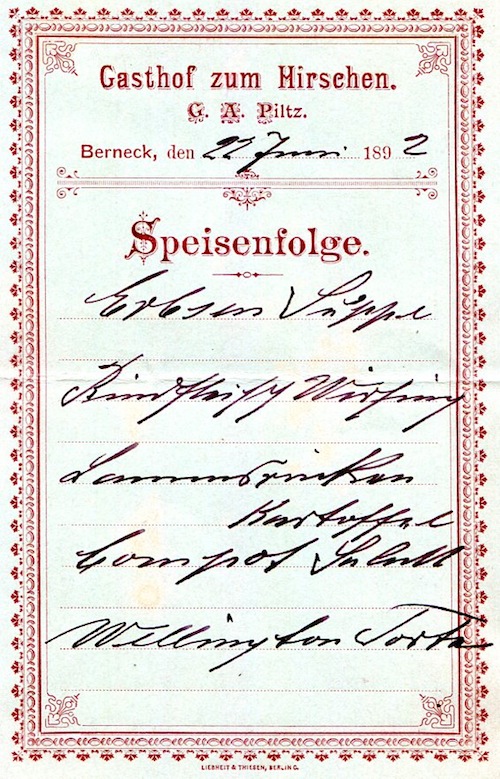 Gasthof zum Hirschen.
G. A. Piltz.
Berneck, den 22 Juni 1892
Speisenfolge.
Erbsen Suppe
Rindfleisch Wirsing
Lammsrücken
Kartoffel
Compot Salatt
Wellington Torte
LIEBHEIT & THIESEN, BERLIN C.